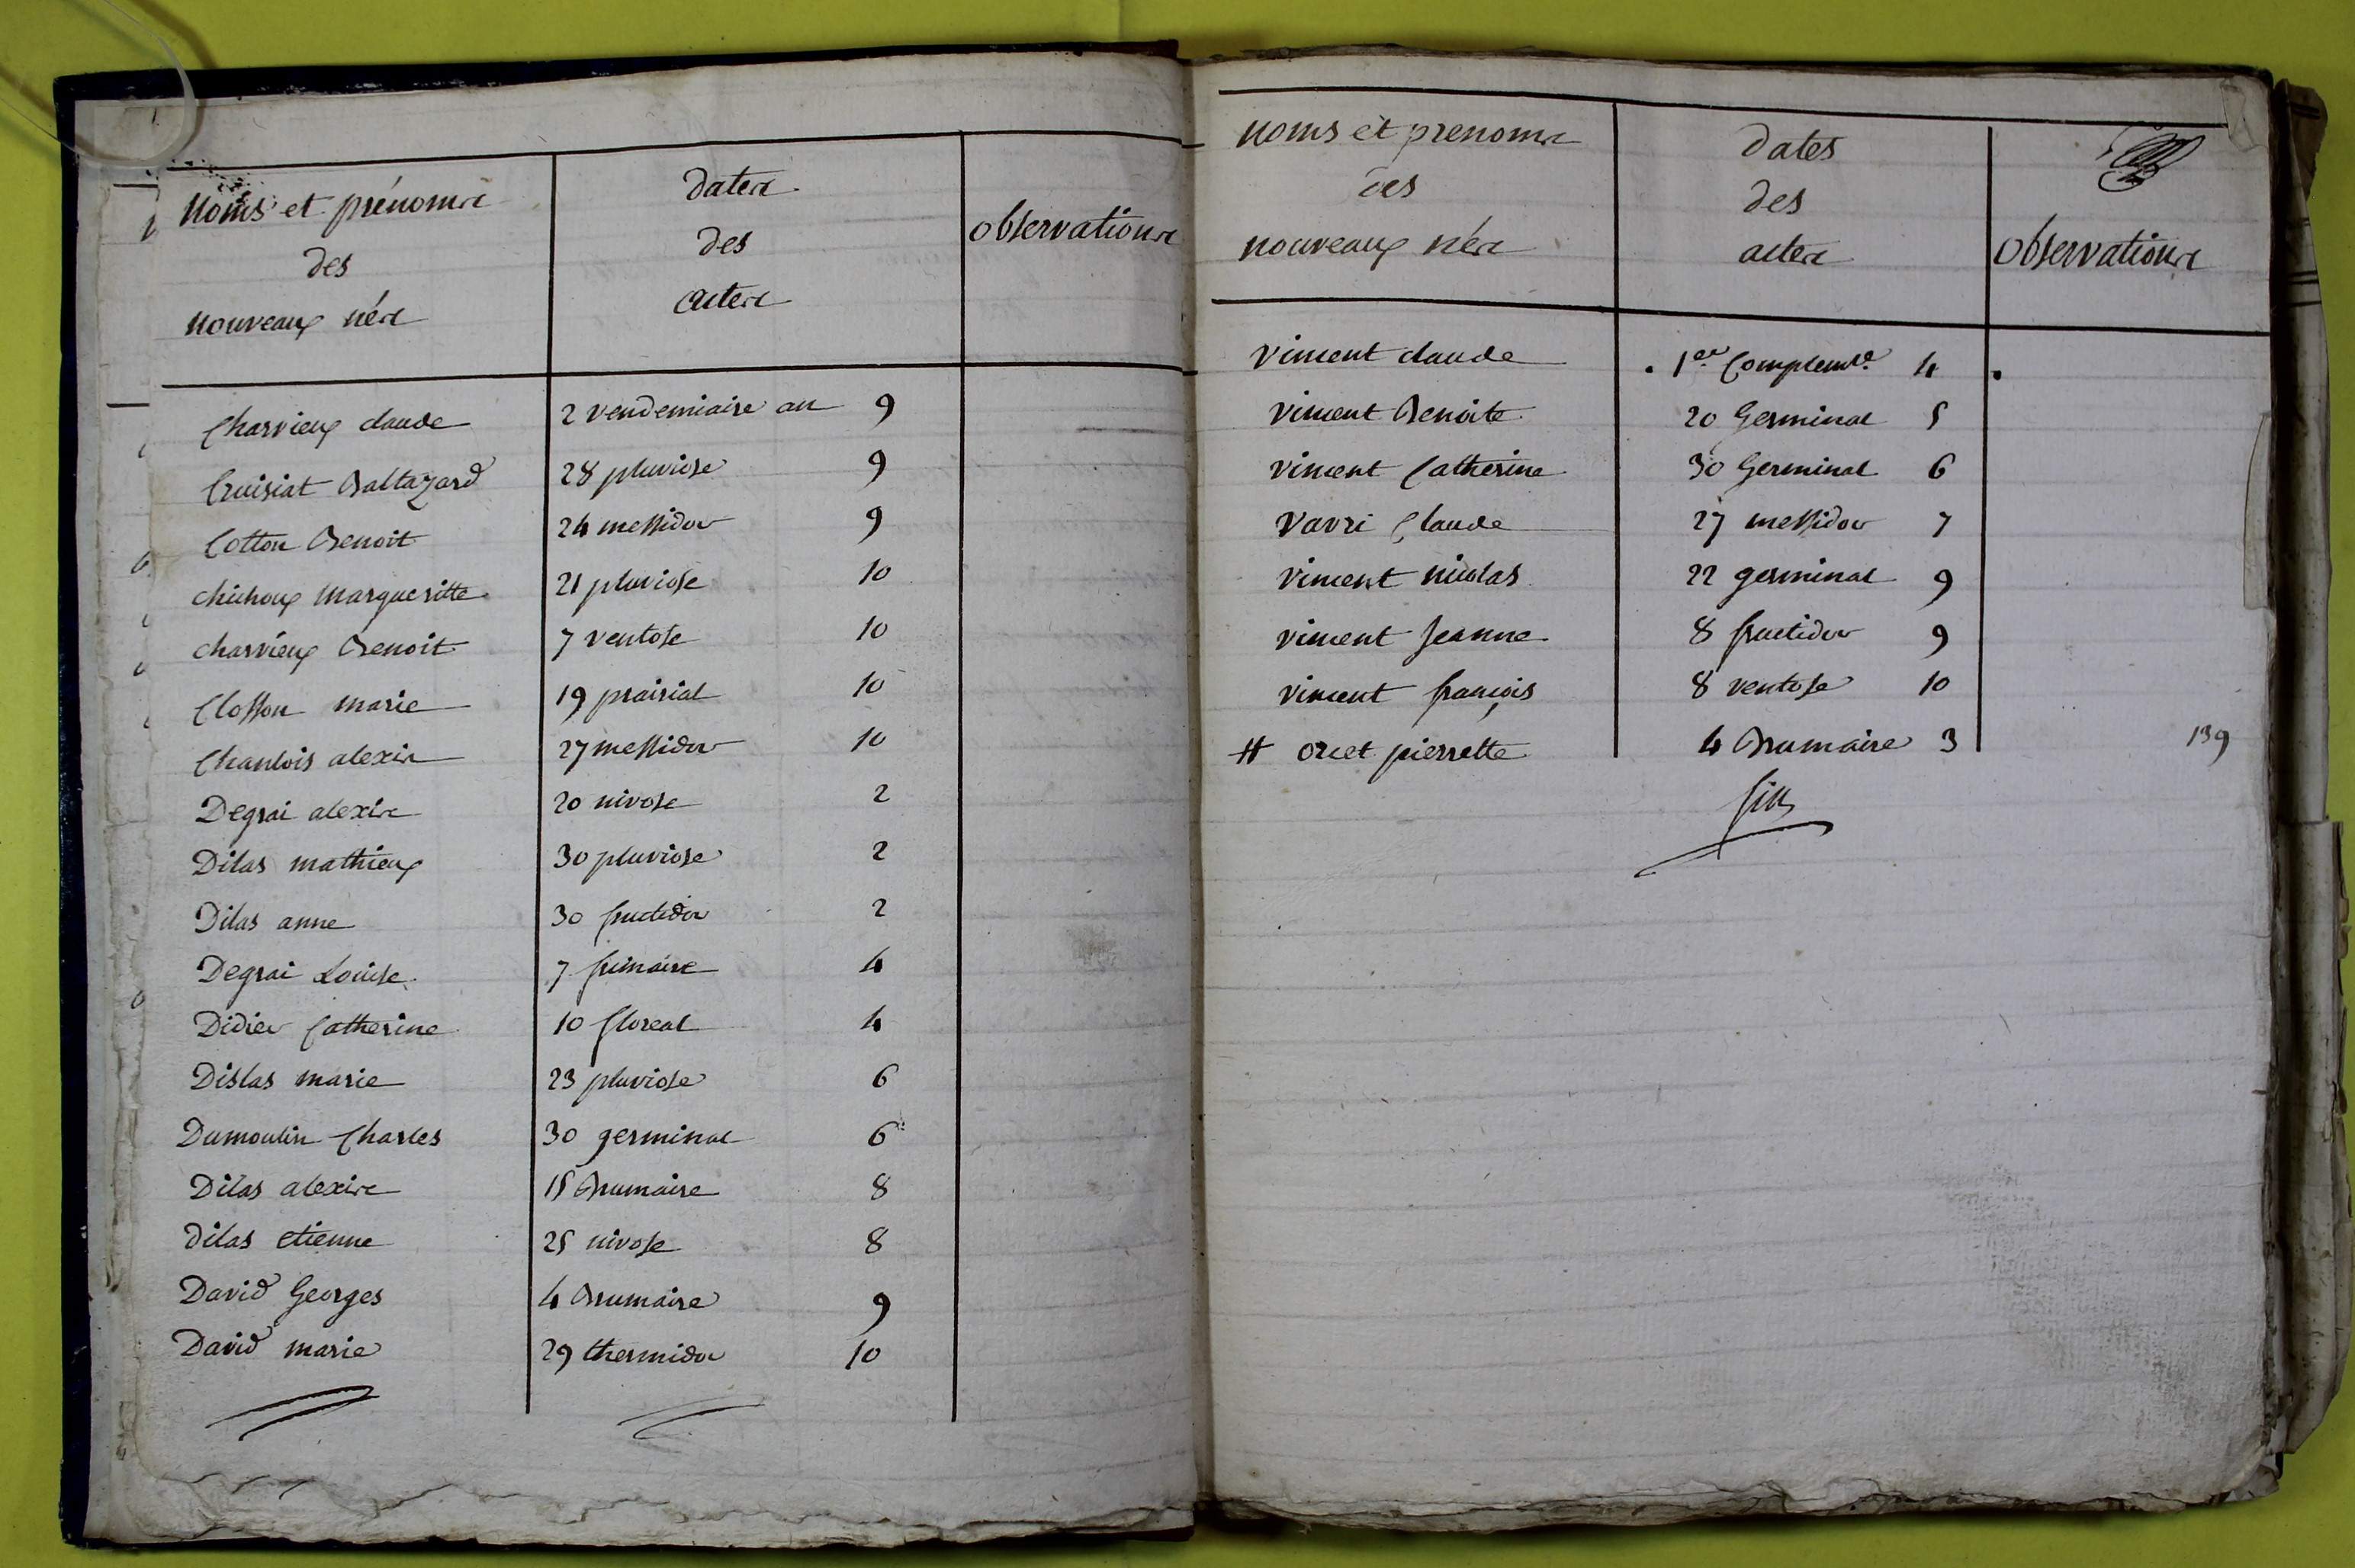 Noms et prénoms
des
nouveaux nés
dates
des
actes
observations
Charvieux claude 2 vendemiaire an 9
Cruisiat Baltazard 28 pluviose 9
Cotton Benoit 24 messidor 9
chichoux Margueritte 21 pluviose 10
charvieux Benoit 7 ventose 10
Closson marie 19 prairial 10
Chanlois alexis 27 messidor 10
Degrai alexis 20 nivose 2
Dilas mathieux 30 pluviose 2
Dilas anne 30 fructidor 2
Degrai Louise 7 frimaire 4
Didier Catherine 10 floreal 4
Dislas marie 23 pluviose 6
Dumoulin Charles 30 germinal 6
Dilas alexis 15 Brumaire 8
dilas etienne 25 nivose 8
David Georges 4 Brumaire 9
David marie 29 thermidor 10
Noms et prenoms
des
nouveaux nés
dates
des
actes
observations
vincent claude 1er Complemre 4
vincent Benoite 20 Germinal 5
vincent Catherine 30 Germinal 6
Vavri Claude 27 messidor 7
vincent nicolas 22 germinal 9
vincent Jeanne 8 fructidor 9
vincent françois 8 ventose 10
# oriet pierrette 4 Brumaire 3
139
fin